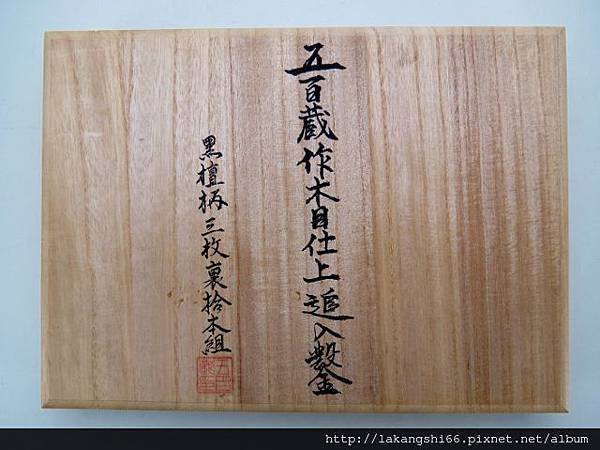 五百蔵作木目仕上追入鑿
黒檀柄三枚裏拾本組
http://lakangshi66.pixnet.net/album